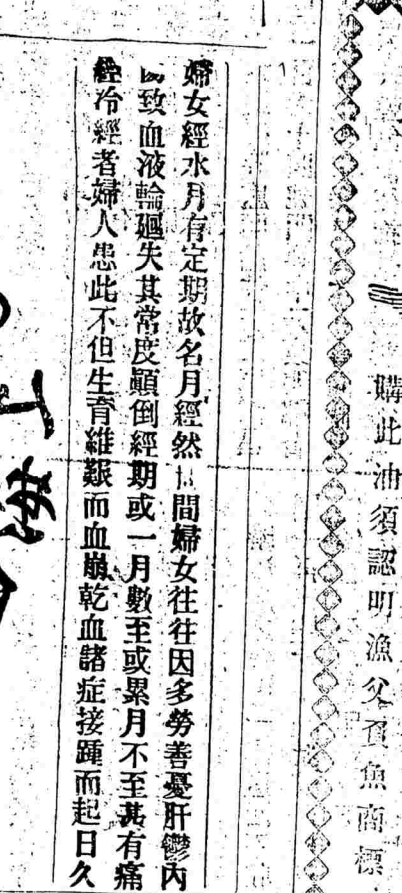 購此油須認明漁父負魚商標
婦女經水月有定期故名月經然間婦女往往因多勞善憂肝鬱內
致血液輪廻失其常度顚倒經期或一月數至或累月不至甚有痛
經冷經者婦人患此不但生育維艱而血崩乾血諸症接踵而起日久